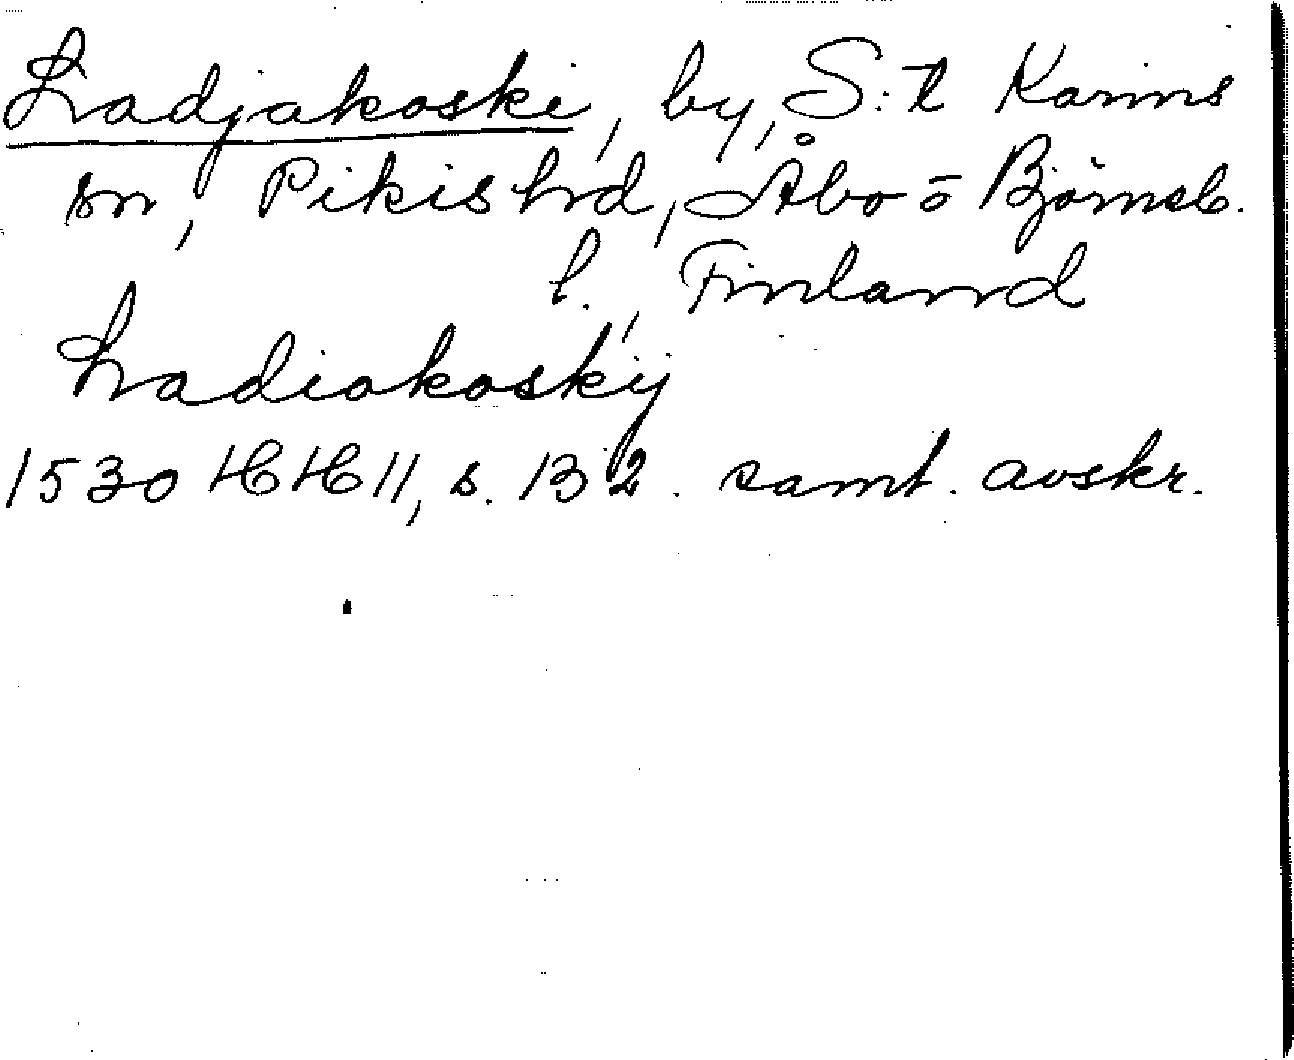 Ladjakoski, by, S:t Karins
sn, Pikis hd, Åbo o Björneb.
l., Finland
Ladiakoskij
1530 HH 11, s. 132. samt. avskr.